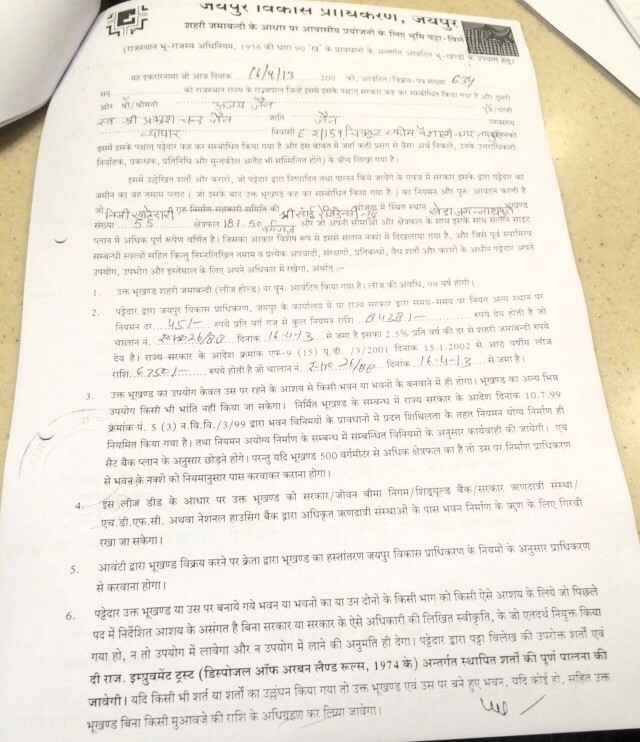 जयपुर विकास प्राधिकरण, जयपुर
शहरी जमाबन्दी के आधार पर आवासीय प्रयोजनों के लिए भूमि पट्टा-विलेख
(राजस्थान भू-राजस्व अधिनियम, 1956 की धारा 90 'ख' के प्रावधानों के अन्तर्गत आवंटित भू-खण्डों के उपयोग हेतु)
यह इकरारनामा जो आज दिनांक 16/4/13 200 को, आवंटित/विक्रय-पत्र संख्या 634
सन् को राजस्थान राज्य के राज्यपाल जिन्हें इसमें इसके पश्चात् सरकार कह कर सम्बोधित किया गया है और दूसरी
ओर श्री/श्रीमती अजय जैन पुत्र/पत्नी
स्व श्री प्रकाश चन्द जैन जाति जैन व्यवसाय
व्यापार निवासी E 2/159 चित्रकूट स्कीम वैशाली नगर जयपुर जिनको
इसमें इसके पश्चात् पट्टेदार कह कर सम्बोधित किया गया है और इस बाबत में जहाँ कहीं प्रसंग से वैसा अर्थ निकले, उनके उत्तराधिकारी
निर्वाहक, प्रबन्धक, प्रतिनिधि और मुन्तकील अलैह भी सम्मिलित होंगे) के बीच लिखा गया है।
इसमें उल्लेखित शर्तों और करारों, जो पट्टेदार द्वारा निष्पादित तथा पालन किये जायेंगे के एवज में सरकार इसके द्वारा पट्टेदार का
जमीन का वह तमाम प्लाट ( जो इसके बाद उक्त भूखण्ड कह कर सम्बोधित किया गया है ) का नियमन और पुनः आवंटन करती है
जो निजी खातेदारी गृह-निर्माण-सहकारी समिति की श्री साई रेजिडेन्सी-IV योजना में स्थित स्थान खेडा जगन्नाथपुरा भूखण्ड
संख्या 55 क्षेत्रफल 187.50 वर्गगज और जो अपनी सीमाओं और क्षेत्रफल के साथ इसके साथ संलग्न साइट
प्लान में अधिक पूर्ण रूपेण वर्णित है। जिसका आकार विशेष रूप से इससे संलग्न नक्शे में दिखलाया गया है, और जिसे पूर्व स्वामित्व
सम्बन्धी स्वत्वों सहित किन्तु निम्नलिखित तमाम व प्रत्येक अपवादों, संरक्षणों, प्रतिबन्धों, वैध शर्तों और करारों के अधीन पट्टेदार अपने
उपयोग, उपभोग और इस्तेमाल के लिए अपने अधिकार में रखेगा, अर्थात् :-
1. उक्त भूखण्ड शहरी जमाबन्दी (लीज होल्ड) पर पुनः आवंटित किया गया है। लीज की अवधि, 99 वर्ष होगी।
2. पट्टेदार द्वारा जयपुर विकास प्राधिकरण, जयपुर के कार्यालय में या राज्य सरकार द्वारा समय-समय पर नियत अन्य स्थान पर
नियमन दर 45/- रुपये प्रति वर्ग गज से कुल नियमन राशि 8438/- रुपये देय होती है जो
चालान नं. दिनांक 16-4-13 से जमा है इसका 2.5% प्रति वर्ष की दर से शहरी जमाबन्दी रुपये
देय है। राज्य-सरकार के आदेश क्रमांक एफ-9 (15) यू.डी. /3/2001 दिनांक 15.1.2002 से आठ वर्षीय लीज
राशि 6750/- रुपये होती है जो चालान नं. दिनांक 16-4-13 से जमा है।
3. उक्त भूखण्ड का उपयोग केवल उस पर रहने के आशय से किसी भवन या भवनों का बनवाने में ही होगा। भूखण्ड का अन्य भिन्न
उपयोग किसी भी भांति नहीं किया जा सकेगा। निर्मित भूखण्ड के सम्बन्ध में राज्य सरकार के आदेश दिनांक 10.7.99
क्रमांक पं. 5 (3) न.वि.वि./3/99 द्वारा भवन विनियमों के प्रावधानों में प्रदत्त शिथिलता के तहत नियमन योग्य निर्माण ही
नियमित किया गया है। तथा नियमन अयोग्य निर्माण के सम्बन्ध में सम्बन्धित विनियमों के अनुसार कार्यवाही की जायेगी। एवं
सैट बैक प्लान के अनुसार छोड़ने होंगे। परन्तु यदि भूखण्ड 500 वर्गमीटर से अधिक क्षेत्रफल का है तो उस पर निर्माण प्राधिकरण
से भवन के नक्शे को नियमानुसार पास करवाकर कराना होगा।
4. इस लीज डीड के आधार पर उक्त भूखण्ड को सरकार/जीवन बीमा निगम/शिड्यूल्ड बैंक/सरकार ऋणदात्री संस्था/
एच.डी.एफ.सी. अथवा नेशनल हाउसिंग बैंक द्वारा अधिकृत ऋणदात्री संस्थाओं के पास भवन निर्माण के ऋण के लिए गिरवी
रखा जा सकेगा।
5. आवंटी द्वारा भूखण्ड विक्रय करने पर क्रेता द्वारा भूखण्ड का हस्तांतरण जयपुर विकास प्राधिकरण के नियमों के अनुसार प्राधिकरण
से करवाना होगा।
6. पट्टेदार उक्त भूखण्ड या उस पर बनाये गये भवन या भवनों का या उन दोनों के किसी भाग को किसी ऐसे आशय के लिये जो पिछले
पद में निर्देशित आशय के असंगत है बिना सरकार या सरकार के ऐसे अधिकारी की लिखित स्वीकृति, के जो एतदर्थ नियुक्त किया
गया हो, न तो उपयोग में लावेगा और न उपयोग में लाने की अनुमति ही देगा। पट्टेदार द्वारा पट्टा विलेख की उपरोक्त शर्तों एवं
दी राज. इम्प्रुवमेंट ट्रस्ट (डिस्पोजल ऑफ अरबन लैण्ड रूल्स, 1974 के) अन्तर्गत स्थापित शर्तों की पूर्ण पालना की
जावेगी। यदि किसी भी शर्त या शर्तों का उल्लंघन किया गया तो उक्त भूखण्ड एवं उस पर बने हुए भवन, यदि कोई हो, सहित उक्त
भूखण्ड बिना किसी मुआवजे की राशि के अधिग्रहण कर लिया जावेगा।